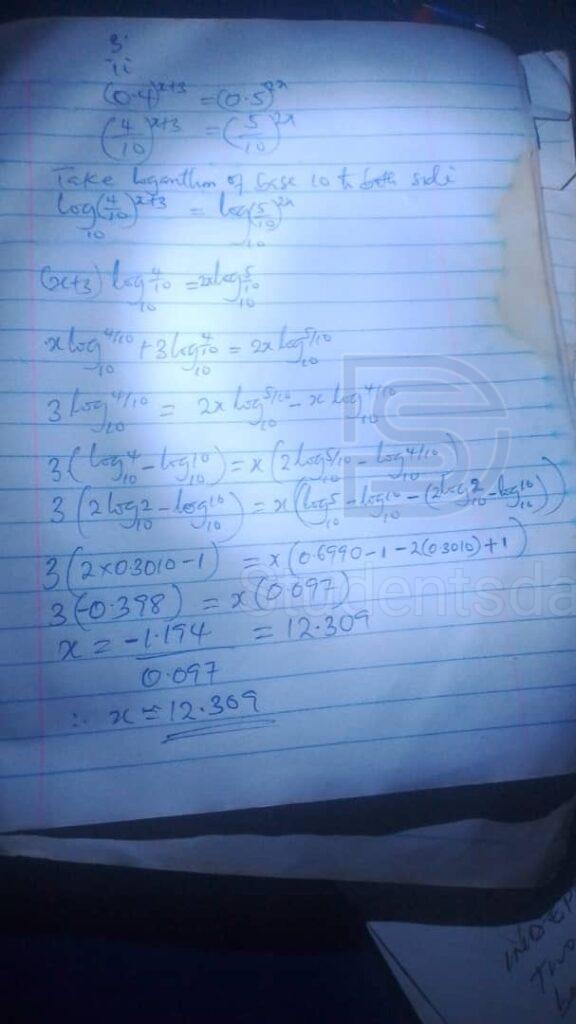 3i
ii
(0.4)^x+3 = (0.5)^2x
(4/10)^x+3 = (5/10)^2x
Take logarithm of base 10 to both side
log10(4/10)^x+3 = log10(5/10)^2x
(x+3) log10 4/10 = 2x log10 5/10
x log10 4/10 + 3 log10 4/10 = 2x log10 5/10
3 log10 4/10 = 2x log10 5/10 - x log10 4/10
3(log10 4 - log10 10) = x(2 log10 5/10 - log10 4/10)
3(2 log10 2 - log10 10) = x(log10 5 - log10 10 - (2 log10 2 - log10 10))
3(2 x 0.3010 - 1) = x(0.6990 - 1 - 2(0.3010) + 1)
3(-0.398) = x(0.097)
x = -1.194/0.097 = 12.309
∴ x = 12.309
Studentsda
INDEP
TWO
be